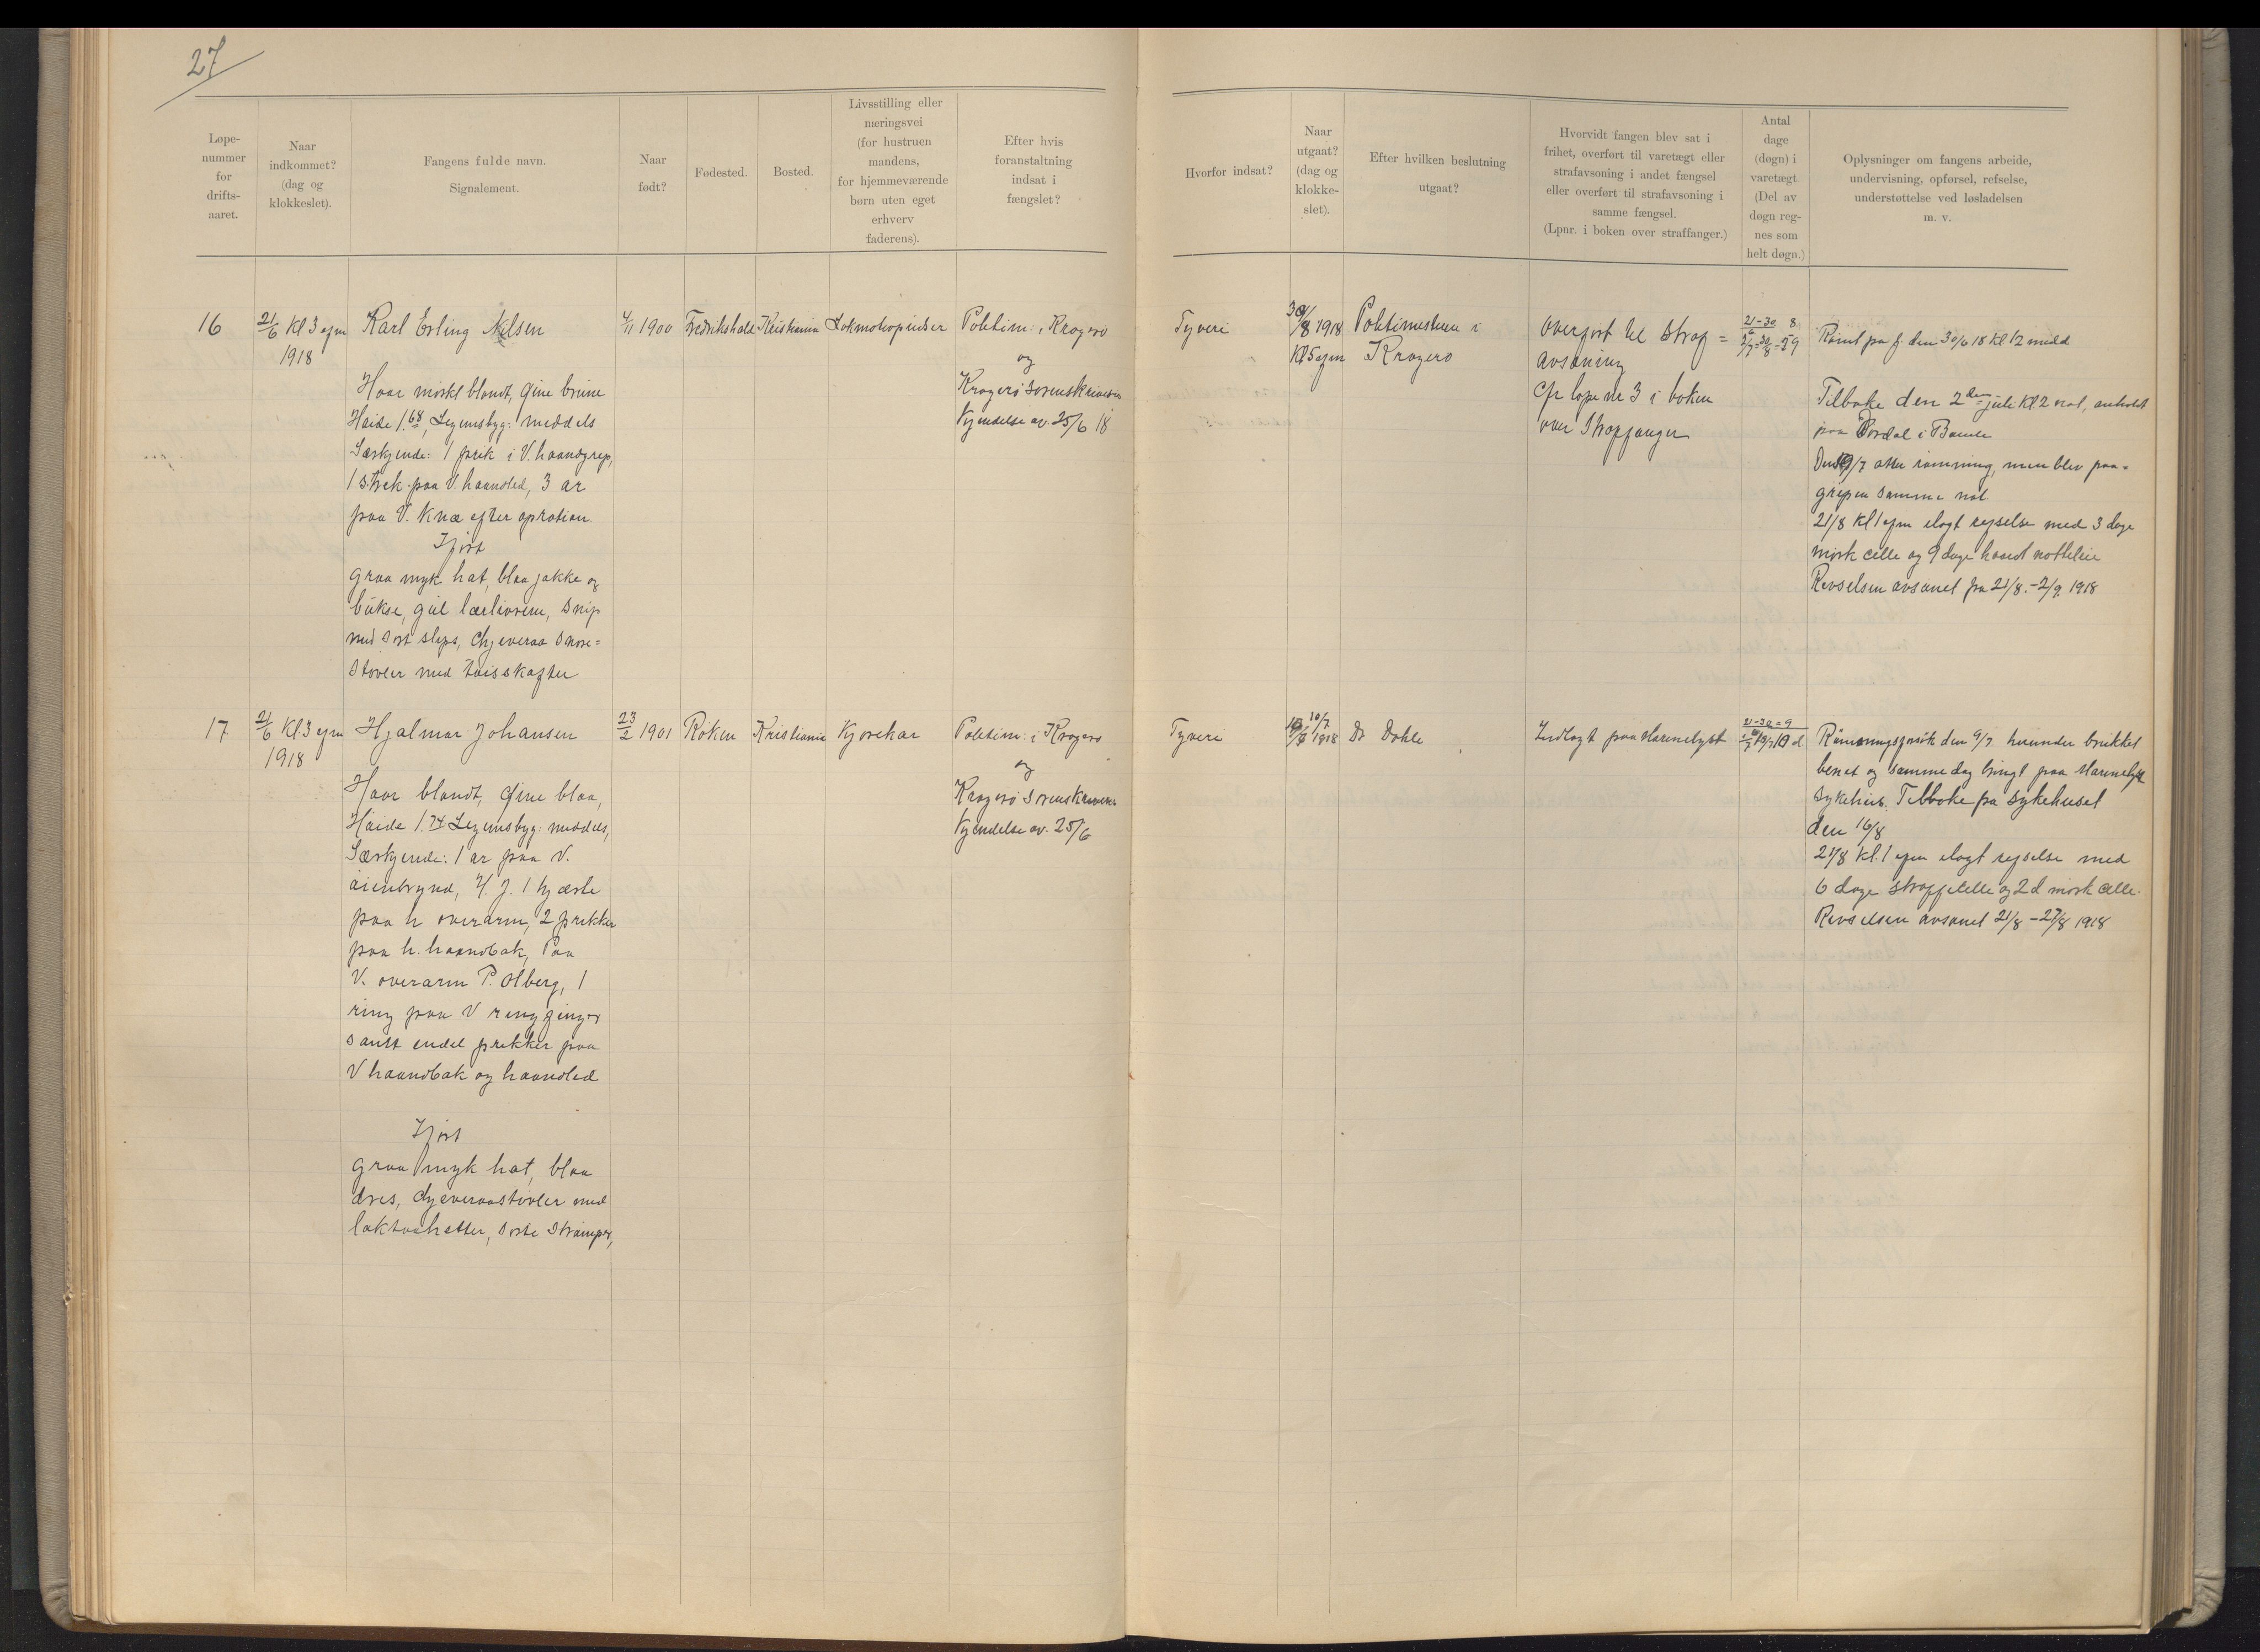 27
Løpe-
nummer
for
drifts-
aaret.
Naar
indkommet?
(dag og
klokkeslet).
Fangens fulde navn.
Signalement.
Naar
født?
Fødested.
Bosted.
Livsstilling eller
næringsvei
(for hustruen
mandens,
for hjemmeværende
børn uten eget
erhverv
faderens).
Efter hvis
foranstaltning
indsat i
fængslet?
Hvorfor indsat?
Naar
utgaat?
(dag og
klokke-
slet).
Efter hvilken beslutning
utgaat?
Hvorvidt fangen blev sat i
frihet, overført til varetægt eller
strafavsoning i andet fængsel
eller overført til strafavsoning i
samme fængsel.
(Lpnr. i boken over straffanger.)
Antal
dage
(døgn) i
varetægt
(Del av
døgn reg-
nes som
helt døgn.)
Oplysninger om fangens arbeide,
undervisning, opførsel, refselse,
understøttelse ved løsladelsen
m. v.
16
21/6 Kl 3 efm
1918
Karl Erling Nilsen
Haar mørkt blondt, Øine brune
Høide 1.68, Legemsbyg: meddels
Særkjende: 1 prik i V. haandgrep,
1 Strek paa V. haandled, 3 ar
paa V. Knæ efter opration
Iført
graa myk hat, blaa jakke og
bukse, gul lærlivrem, Snip
med sort slips, Chjeveraa Snøre=
Støvler med tøisskafter
1900
Fredrikshald
Kristiania
Lokmotivpudser
Politim: i Kragerø
og
Kragerø Sorenskrivers
Kjendelse av. 25/6 18
Tyveri
30/8 1918
Kl 5 efm
Politimesteren i
Kragerø
Overført til Straf=
avsoning
Cfr løpe nr 3 i boken
over Straffanger
21-30 8
Rømt fra f. den 30/6 18 Kl 12 midd
Tilbake den 2den juli Kl. 2 nat, anholdt
paa Ørdal i Bamle
Den 9/7 atter rømning, men blev paa-
grepen samme nat
21/8 Kl 1 efm ilagt refselse med 3 dage
mørk celle og 9 dage haardt natteleie
Revselsen avsonet fra 21/8.-2/9 1918
17
21/6 Kl 3 efm
1918
Hjalmar Johansen
Haar blondt, Øine blaa,
Høide 1.74 Legemsbyg: meddels,
Særkjende: 1 ar paa V.
øienbrynd, H. J. 1 hjærte
paa h overarm, 2 prikker
paa h. haandbak, Paa
V. overarm P. Olberg, 1
ring paa V ringfinger
samt endel prikker paa
V haandbak og haandled
Iført
graa myk hat, blaa
dres, Chjeveraastøvler med
laktaahetter, Sorte Strømper,
23/2 1901
Røken
Kristiania
Kjørekar
Politim: i Kragerø
og
Kragerø Sorenskrivers
Kjendelse av. 25/6
Tyveri
10/7
1918
Dr Dahle
Indlagt paa Marenelyst
21-30=9
Rømningsforsøk den 9/7 herunder brukket
benet og samme dag bringt paa Marenelyst
Sykehus. Tilbake fra sykehuset
den 16/8
21/8 Kl. 1 efm ilagt refselse med
6 dage straffecelle og 2 d mørk celle.
Revselsen avsonet 21/8 - 27/8 1918